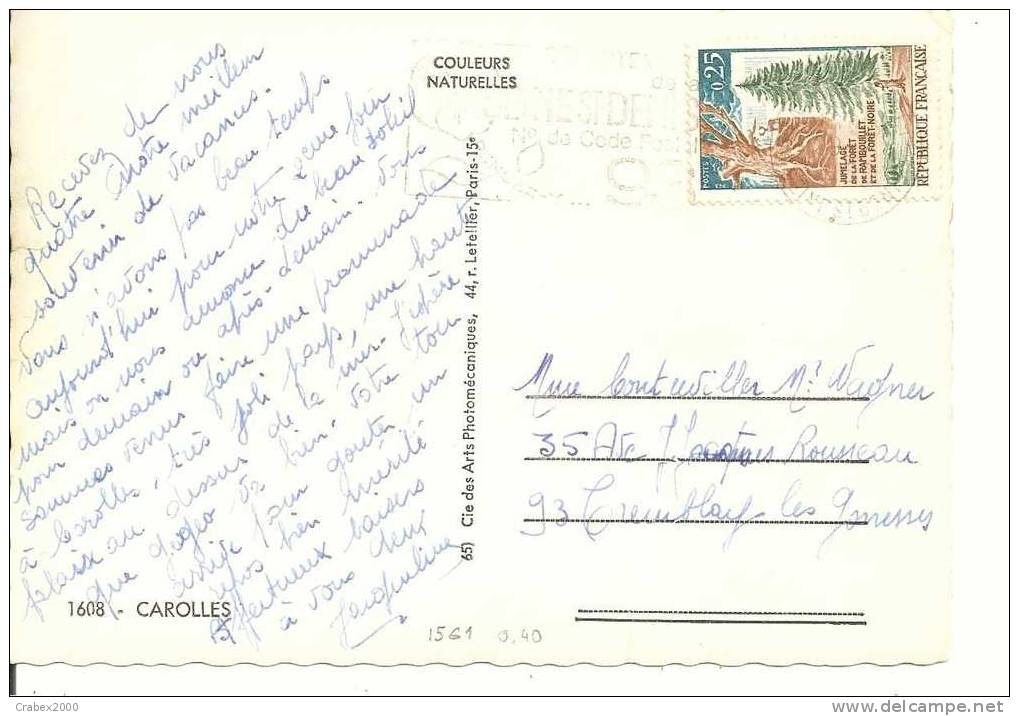 COULEURS
NATURELLES
Recevez de nous
quatre notre meilleur
souvenir de vacances.
Vous n'avons pas beau temps
aujourd'hui pour notre 2eme jour
mais on nous annonce du beau soleil
pour demain ou après-demain. Nous
sommes venus faire une promenade
à Carolles, très joli pays, une haute
falaise au dessus de la mer. J'espère
que Gogeo va bien. Votre tour
arrive pour gouter un
repos bien mérité
Affectueux baisers
à vous deux
Jacqueline
1608 - CAROLLES
65) Cie des Arts Photomécaniques, 44, r. Letellier, Paris-15e
N° de Code Postal
0,25
POSTES
JUMELAGE
DE LA FORÊT
DE RAMBOUILLET
ET DE LA FORÊT-NOIRE
REPUBLIQUE FRANÇAISE
Mme Contuviller Mr Wagner
35 Ave J Jacques Rousseau
93 Tremblay-les Gonesses
1561 0,40
Crabex2000
www.delcampe.net